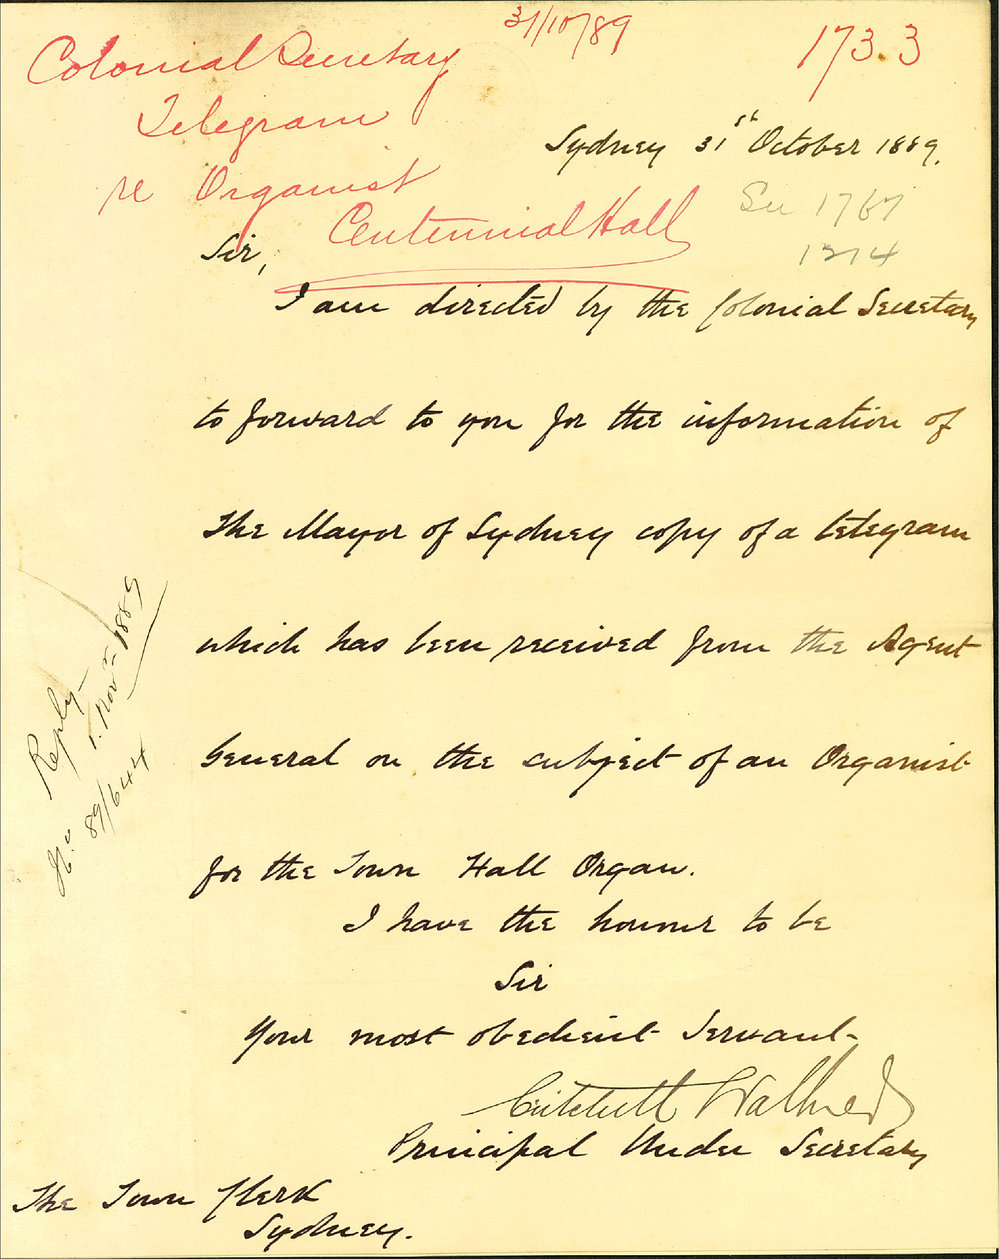 31/10/89
1733
Colonial Secretary
Telegram
re Organist
Centennial Hall
Sydney 31st October 1889.
See 1767
1214
Sir,
I am directed by the Colonial Secretary
to forward to you for the information of
The Mayor of Sydney copy of a telegram
which has been received from the Agent
General on the subject of an Organist
for the Town Hall Organ.
I have the honour to be
Sir
Your most obedient Servant
Critchett Walker
Principal Under Secretary
The Town Clerk
Sydney.
Reply
1. Novr 1889
No 89/644